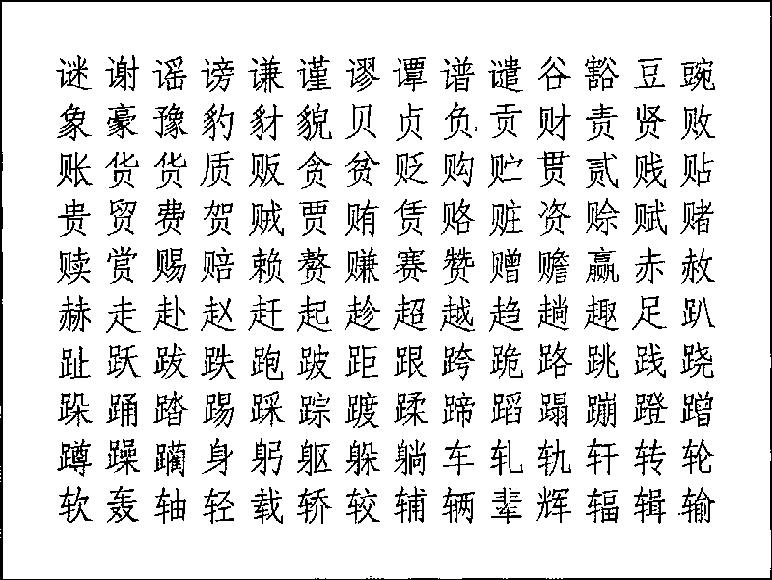 谜谢谣谤谦谨谬谭谱谴谷豁豆豌
象豪豫豹豺貌贝贞负贡财责贤败
账货货质贩贪贫贬购贮贯贰贱贴
贵贸费贺贼贾贿赁赂赃资赊赋赌
赎赏赐赔赖赘赚赛赞赠赡赢赤赦
赫走赴赵赶起趁超越趋趟趣足趴
趾跃跋跌跑跛距跟跨跪路跳践跷
跺踊踏踢踩踪踱蹂蹄蹈蹋蹦蹬蹭
蹲躁躏身躬躯躲躺车轧轨轩转轮
软轰轴轻载轿较辅辆辈辉辐辑输